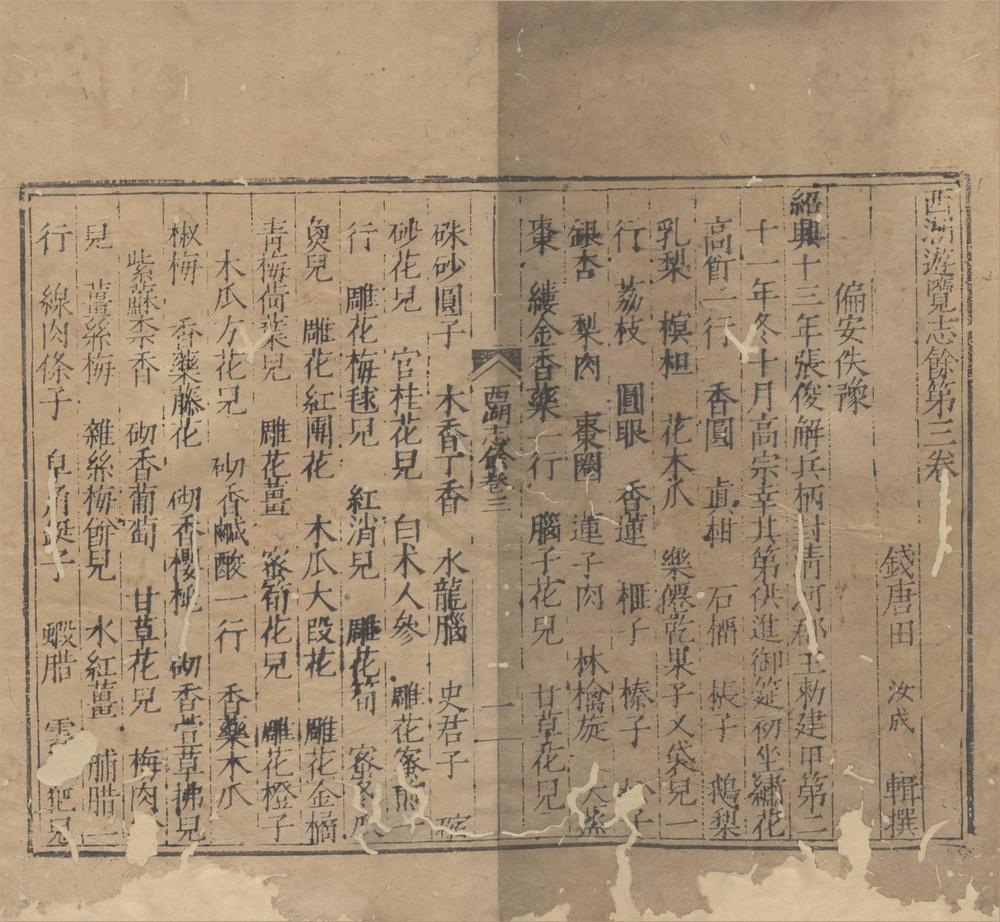 西湖遊覽志餘第三卷
錢唐田 汝成 輯撰
偏安佚豫
紹興十三年張俊解兵柄封淸河郡王勑建甲第二
十一年冬十月高宗幸其第供進御筵初坐繡花
高飣一行 香圓 眞柑 石橊 棖子 鵝梨
乳梨 榠柤 花木瓜 樂僊乾果子叉袋兒一
行 荔枝 圓眼 香蓮 榧子 榛子 子
銀杏 梨肉 棗圈 蓮子肉 林檎旋 大蒸
棗 縷金香藥一行 腦子花兒 甘草花兒
西湖志餘卷三 一
硃砂圓子 木香丁香 水龍腦 史君子 縮
砂花兒 官桂花兒 白术人參 雕花蜜煎一
行 雕花梅毬兒 紅消兒 雕花筍 蜜冬瓜
魚兒 雕花紅團花 木瓜大段花 雕花金橘
靑梅荷葉兒 雕花薑 蜜筍花兒 雕花橙子
木瓜方花兒 砌香鹹酸一行 香藥木瓜
椒梅 香藥藤花 砌香櫻桃 砌香萱草拂兒
紫蘇柰香 砌香葡萄 甘草花兒 梅肉
兒 薑絲梅 雜絲梅餅兒 水紅薑 脯腊一
行 線肉條子 皁角鋌子 蝦腊 雲 豝兒